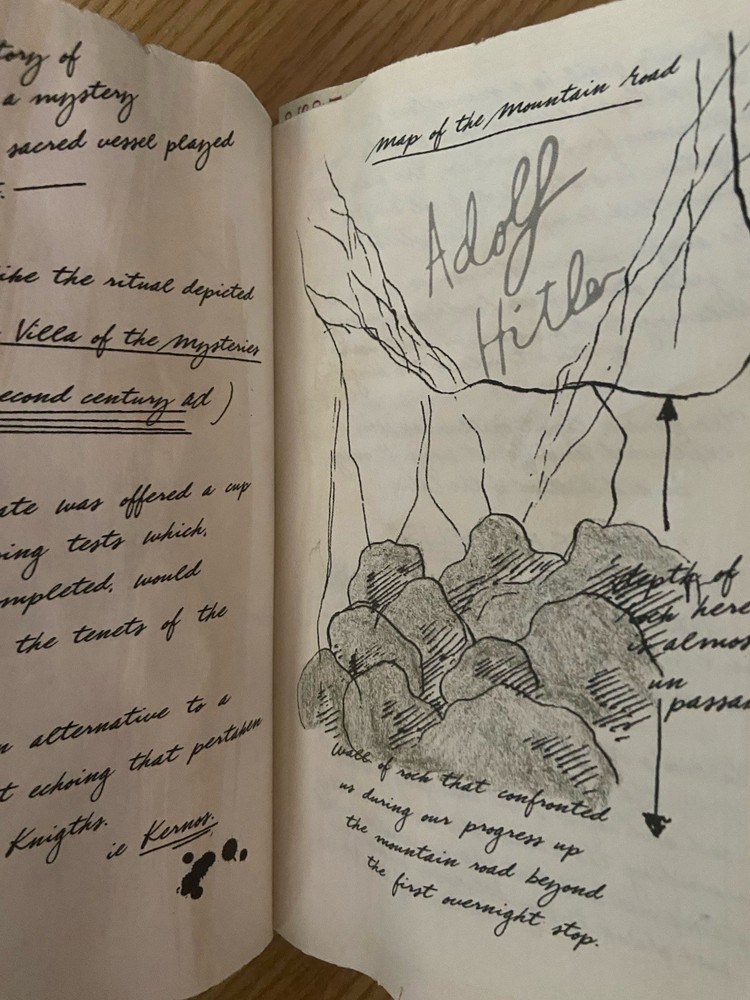 tory of
a mystery
sacred vessel played
ike the ritual depicted
Villa of the Mysteries
econd century ad )
ate was offered a cup
ing tests which,
mpleted, would
the tenets of the
n alternative to a
t echoing that pertaken
Knigths.
ie Kernos.
Map of the Mountain Road
Adolf
Hitler
depth of
rock here
is almos
un
passa
wall of rock that confronted
us during our progress up
the mountain road beyond
the first overnight stop.